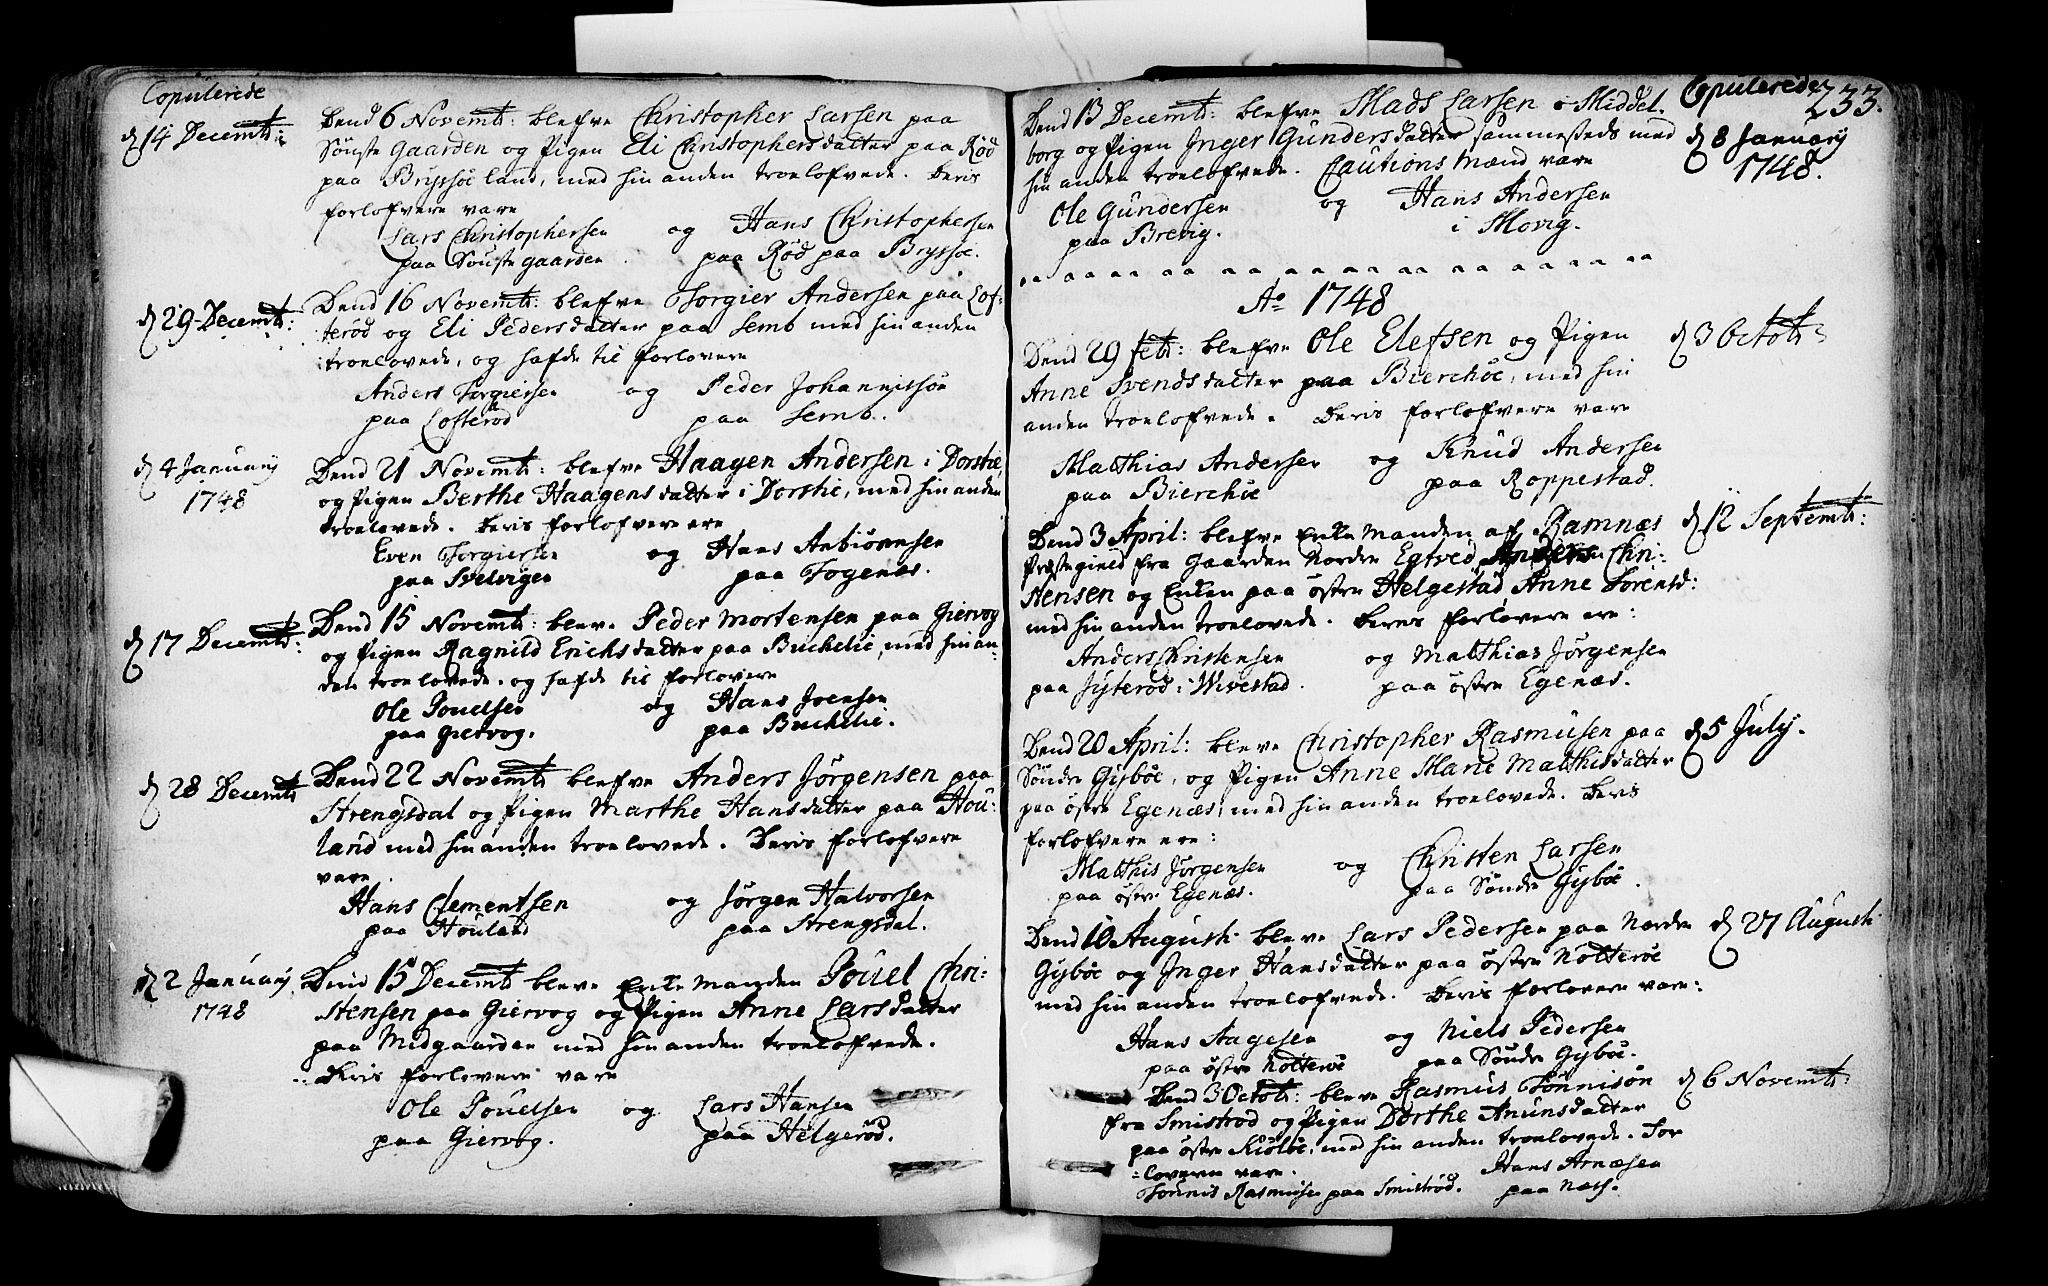 Copulerede
d 14 Decembr:
Dend 6 Novembr: blefve Christopher Larsen paa
Sönste gaarden og Pigen Eli Christophersdatter paa Röd
paa Bryssöe land, med hinanden troelofvede. Deris
forlofvere vare
Lars Christophersen og Hans Christophersen
paa Sönste gaarden paa Röd paa Bryssöe.
d 29 Decembr:
Dend 16 Novembr: blefve Torgier Andersen paa Lof-
teröd og Eli Pedersdatter paa Semb med hinanden
troelovede, og hafde til forlovere
Anders Torgiersen og Peder Johannissön
paa Lofteröd paa Semb.
d 4 January
1748
Dend 21 Novembr: blefve Haagen Andersen i Dorstie,
og Pigen Berthe Haagensdatter i Dorstie, med hinanden
troelovede. Deris forlofvere ere
Even Torgiersen og Hans Anbiörnsen
paa Svelvigen paa Fogenæs.
d 17 Decembr:
Dend 15 Novembr: bleve Peder Mortensen paa Giervog
og Pigen Ragnild Erichsdatter paa Buchelie, med hinan-
den troelovede. og hafde til forlovere
Ole Pouelsen og Hans Joensen
paa Giervog. paa Buchelie.
d 28 Decembr
Dend 22 Novembr blefve Anders Jørgensen paa
Strengsdal og Pigen Marthe Hansdatter paa Hou-
land med hinanden troelovede. Deris forlofvere
vare
Hans Clementsen og Jørgen Halvorsen
paa Houland paa Strengsdal.
d 2 January
1748
Dend 15 Decembr bleve Enke Manden Pouel Chri-
stensen paa Giervog og Pigen Anne Larsdatter
paa Medgaarden med hinanden troelofvede.
Deris forlovere vare
Ole Pouelsen og Lars Hansen
paa Giervog. paa Helgeröd.
Copulerede 233.
d 8 January
1748.
Dend 13 Decembr: blefve Mads Larsen i Middel-
borg og Pigen Inger Gundersdatter sammesteds med
hinanden troelofvede. Cautions Mænd vare
Ole Gundersen og Hans Andersen
paa Brevig. i Movig.
Ao 1748
d 3 Octobr:
Dend 29 febr: blefve Ole Elefsen og Pigen
Anne Svendsdatter paa Bierchöe, med hin
anden troelofvede. Deris forlofvere vare
Matthias Andersen og Knud Andersen
paa Bierchöe paa Roppestad.
d 12 Septembr:
Dend 3 April: blefve Enke Manden af Ramnæs
Præstegield fra Gaarden Nordre Egtved Anders Chri-
stensen og Enken paa östre Helgestad Anne Sørensd:
med hinanden troelovede. Deres forlovere ere:
Anders Christensen og Matthias Jørgensen
paa Jyteröd i Wivestad. paa östre Egenæs.
d 5 July.
Dend 20 April: bleve Christopher Rasmusen paa
Söndre Gisböe, og Pigen Anne Marie Matthisdatter
paa östre Egenæs, med hinanden troelovede. Deris
forlofvere ere:
Matthis Jørgensen og Christen Larsen
paa östre Egenæs. paa Söndre Gisböe.
d 27 Augusti
Dend 10 Augusti bleve Lars Pedersen paa Nordre
Gisböe og Inger Hansdatter paa östre Nötteröe
med hinanden troelofvede. Deris forlovere vare:
Hans Aagesen og Niels Pedersen
paa östre Nötteröe paa Söndre Gisböe.
d 6 Novembr:
Dend 3 Octobr: bleve Rasmus Tönnisön
fra Smiströd og Pigen Dorthe Anunsdatter
paa östre Kiölöe, med hinanden troelovede. For
lovere vare. Hans Arnesen
Tönnis Rasmusen paa Smiströd. paa Næs.